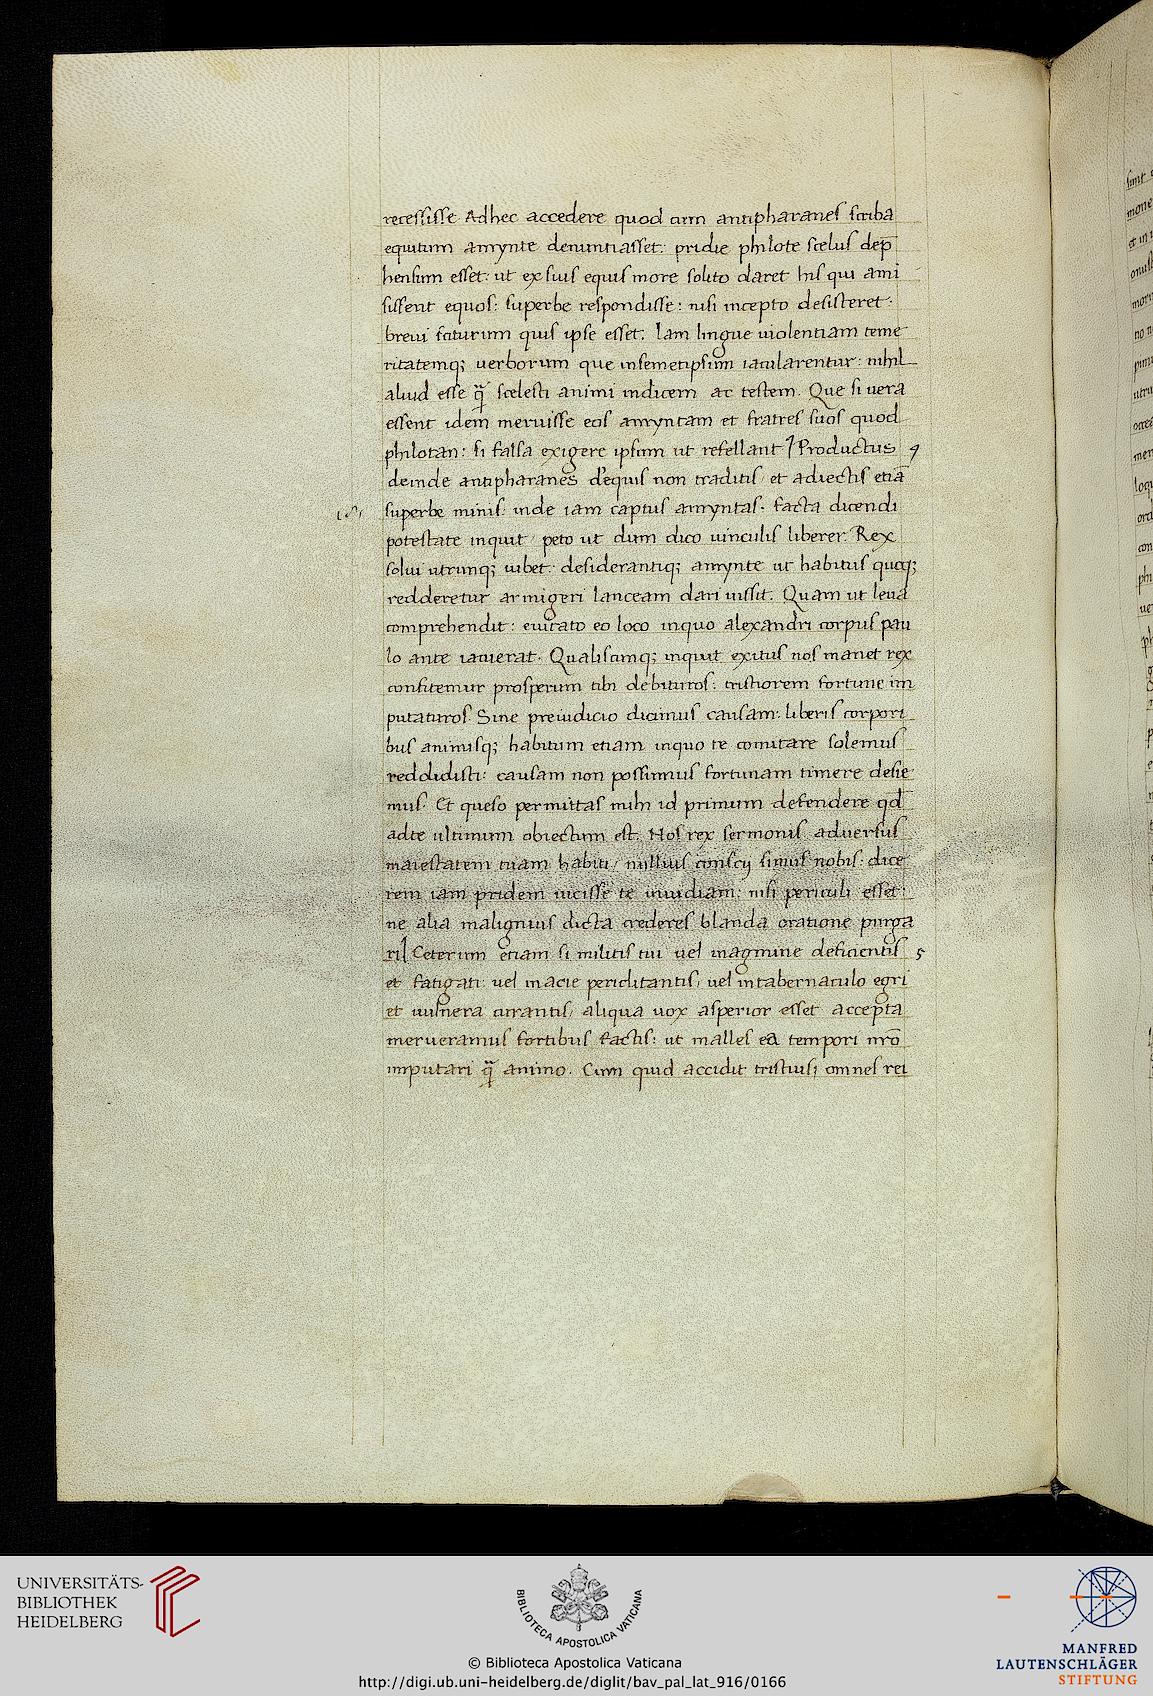 recessisse Adhec accedere quod cum antipharanes scriba
equitum amynte denuntiasset: pridie philote scelus dep̄
hensum esset: ut ex suis equis more solito daret his qui ami
sissent equos: superbe respondisse: nisi incepto desisteret:
brevi futurum quis ipse esset. Iam lingue violentiam teme
ritatemq; verborum que insemetipsum iacularentur: nihil
aliud esse q̄ scelesti animi indicem ac testem. Que si vera
essent idem meruisse eos amyntam et fratres suos quod
philotan: si falsa exigere ipsum ut refellant Productus 4
deinde antipharanes d'equis non traditis/ et adiectis etiā
superbe minis: inde iam captus amyntas. facta dicendi
potestate inquit/ peto ut dum dico vinculis liberer. Rex
solui utrunq; iubet: desiderantiq; amynte ut habitus quoq;
redderetur armigeri lanceam dari iussit. Quam ut leva
comprehendit: evitato eo loco inquo alexandri corpus pau
lo ante iacuerat. Qualiscunq; inquit exitus nos manet rex
confitemur prosperum tibi debituros: tristiorem fortune im
putaturos. Sine preiudicio dicimus causam: liberis corpori
bus animisq; habitum etiam inquo te comitare solemus
reddidisti: causam non possumus fortunam timere desie
mus. Et queso permittas mihi id primum defendere qd̄
adte ultimum obiectum est. Nos rex sermonis adversus
maiestatem tuam habiti/ nullius conscij simus nobis: dice
rem iam pridem vicisse te invidiam: nisi periculi esset:
ne alia malignius dicta crederes blanda oratione purga
ri Ceterum etiam si militis tui vel inagmine deficientis 5
et fatigati: vel inacie periclitantis/ vel intabernaculo egri
et vulnera curantis/ aliqua vox asperior esset accepta
merueramus fortibus factis: ut malles ea tempori nr̄o
imputari q̄ animo. Cum quid accidit tristius/ omnes rei
UNIVERSITÄTS-
BIBLIOTHEK
HEIDELBERG
BIBLIOTECA APOSTOLICA VATICANA
MANFRED
LAUTENSCHLÄGER
STIFTUNG
© Biblioteca Apostolica Vaticana
http://digi.ub.uni-heidelberg.de/diglit/bav_pal_lat_916/0166